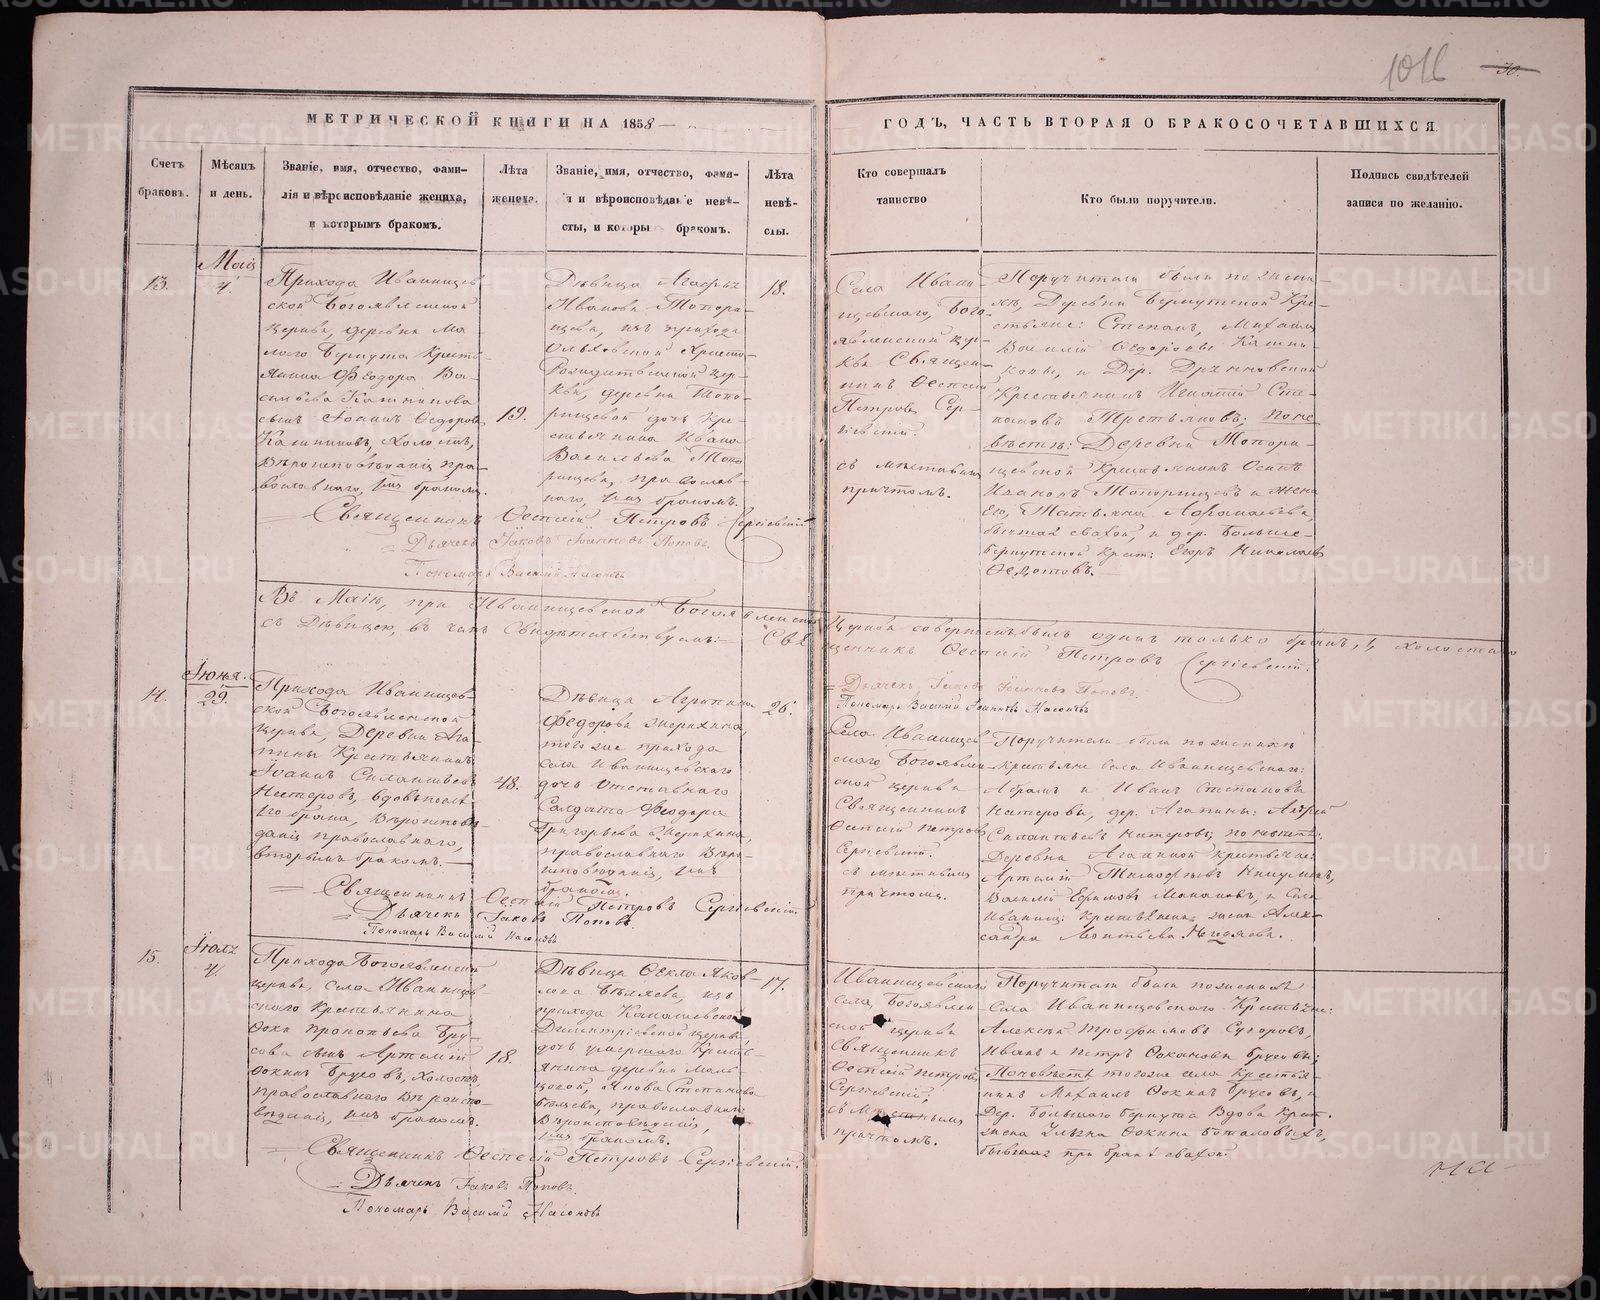 1016
30.
МЕТРИЧЕСКОЙ КНИГИ НА 1858
ГОДЪ, ЧАСТЬ ВТОРАЯ О БРАКОСОЧЕТАВШИХСЯ.
Счетъ браковъ.
Мѣсяцъ и день.
Званіе, имя, отчество, фами-
лія и вѣроисповѣданіе жениха,
и которымъ бракомъ.
Лѣта
жениха.
Званіе, имя, отчество, фами-
лія и вѣроисповѣданіе невѣ-
сты, и которымъ бракомъ.
Лѣта
невѣ-
сты.
Кто совершалъ
таинство
Кто были поручители.
Подпись свидѣтелей
записи по желанію.
13.
Маія
4.
Прихода Иванищев-
ской Богоявленской
церкви, деревни Ма-
лаго Бермута Кресть-
янина Ѳеодора Ва-
сильева Кашникова
сынъ Іоаннъ Ѳедоровъ
Кашниковъ, холостъ,
Вѣроисповѣданія пра-
вославнаго, 1мъ бракомъ.
19.
Дѣвица
Иванова Топори-
щева, изъ прихода
Ольховской Христо-
Рождественской цер-
кви, деревни Топо-
рищевой дочь Кре-
стьянина Ивана
Васильева Топо-
рищева, православ-
наго, 1мъ бракомъ.
18.
Села Ивани-
щевскаго, Бого-
явленской цер-
кви Священ-
никъ
Петровъ Сер-
гіевскій.
съ мѣстнымъ
причтомъ.
Поручители были по жени-
хѣ, Деревни Бермутской Кре-
стьяне: Степанъ, Михаилъ
Василій Ѳедоровы Кашни-
ковы, и Дер.
Крестьянинъ Игнатій Сте-
пановъ Третьяковъ; по не-
вѣстѣ: Деревни Топори-
щевской Крестьянинъ Осипъ
Ивановъ Топорищевъ и жена
Его, Татьяна
бывшая свахой, и дер. Больше-
бермутской Крест: Егоръ Николаевъ
Ѳедотовъ.
Священникъ Петровъ Сергіевскій
Дьячекъ Іаковъ Іоанновъ Поповъ.
Пономарь Василій Насоновъ
Въ Маіѣ, при Иванищевской Богоявленской Церкви совершенъ былъ одинъ только бракъ, 1, холостаго
съ Дѣвицею, въ чемъ Свидѣтельствуемъ: Священникъ Петровъ Сергіевскій.
Дьячекъ Іаковъ Іоанновъ Поповъ.
Пономарь Василій Іоанновъ Насоновъ
14.
Іюня.
29.
Прихода Иванищев-
ской Богоявленской
церкви, Деревни Ага-
пины Крестьянинъ
Іоаннъ Силантьевъ
Нестеровъ, вдовъ послѣ
1го брака, Вѣроисповѣ-
данія православнаго,
вторымъ бракомъ.
48.
Дѣвица Агрипина
Федорова
того же прихода
села Иванищевскаго
дочь отставнаго
Солдата Феодора
Григорьева
православнаго Вѣро-
исповѣданія, 1мъ
бракомъ.
26.
Села Иванищев-
скаго Богоявлен-
ской церкви
Священникъ
Петровъ
Сергіевскій.
съ мѣстнымъ
причтомъ.
Поручители были по женихѣ
Крестьяне села Иванищевскаго:
Абрамъ и Иванъ Степановы
Нестеровы, дер. Агапины: Андрей
Силантьевъ Нестеровъ; по невѣстѣ:
Деревни Агапиной Крестьяне:
Василій Ефимовъ и Села
Иванищ: Крестьянина жена Алек-
сандра
Священникъ Петровъ Сергіевскій.
Дьячекъ Іаковъ Поповъ
Пономарь Василій Насоновъ
15.
Іюля
4.
Прихода Богоявленской
церкви, села Иванищев-
скаго Крестьянина
Фоки Прокопьева Бру-
сова сынъ Артемій
Фокинъ Брусовъ, холостъ,
православнаго Вѣроиспо-
вѣданія, 1мъ бракомъ.
18.
Дѣвица Ѳекла Яков-
лева Бѣляева, изъ
прихода
Димитріевской церкви
дочь умершаго Кресть-
янина деревни Маль-
цовой, Якова Степанова
Бѣляева, православнаго
Вѣроисповѣданія,
1мъ бракомъ.
17.
Иванищевскаго
села, Богоявлен-
ской церкви
Священникъ
Петровъ
Сергіевскій;
съ мѣстнымъ
причтомъ.
Поручители были по женихѣ
Села Иванищевскаго Крестьяне:
Алексѣй Трофимовъ Суворовъ,
Иванъ и Петръ Фокиновы Брусовы;
По невѣстѣ тогоже села Крестья-
нинъ Михаилъ Фокинъ Брусовъ, и
Дер. Большаго Бермута Вдова Крест.
жена Ульяна Фокина
бывшая при бракѣ свахой.
Священникъ Петровъ Сергіевскій.
Дьячекъ Іаковъ Поповъ.
Пономарь Василій Насоновъ
METRIKI.GASO-URAL.RU